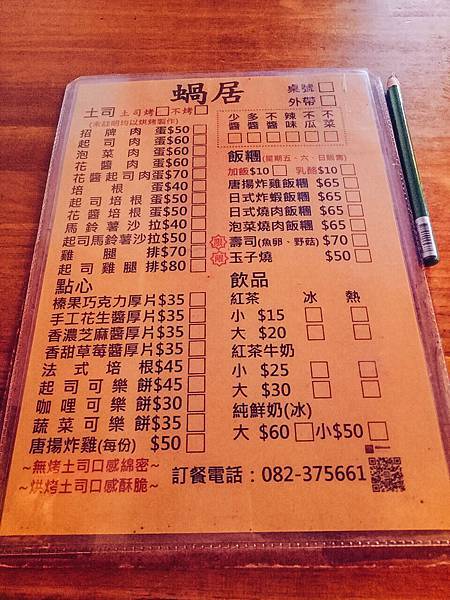 蝸居
桌號
外帶
土司 土司烤 不烤
(未註明均以烘烤製作)
招牌肉蛋$50
起司肉蛋$60
泡菜肉蛋$60
花醬肉蛋$60
花醬起司肉蛋$70
培根蛋$40
起司培根蛋$50
花醬培根蛋$50
馬鈴薯沙拉$40
起司馬鈴薯沙拉$50
雞腿排$70
起司雞腿排$80
點心
榛果巧克力厚片$35
手工花生醬厚片$35
香濃芝麻醬厚片$35
香甜草莓醬厚片$35
法式培根$45
起司可樂餅$45
咖哩可樂餅$30
蔬菜可樂餅$35
唐揚炸雞(每份) $50
~無烤土司口感綿密~
~烘烤土司口感酥脆~
少醬 多醬 不醬 辣味 不瓜 不菜
飯糰(星期五、六、日販售)
加飯$10 乳酪$10
唐揚炸雞飯糰 $65
日式炸蝦飯糰 $65
日式燒肉飯糰 $65
泡菜燒肉飯糰 $65
壽司(魚卵、野菇) $70
玉子燒 $50
飲品
紅茶 冰 熱
小 $15
大 $20
紅茶牛奶
小 $25
大 $30
純鮮奶(冰)
大 $60 小$50
訂餐電話：082-375661